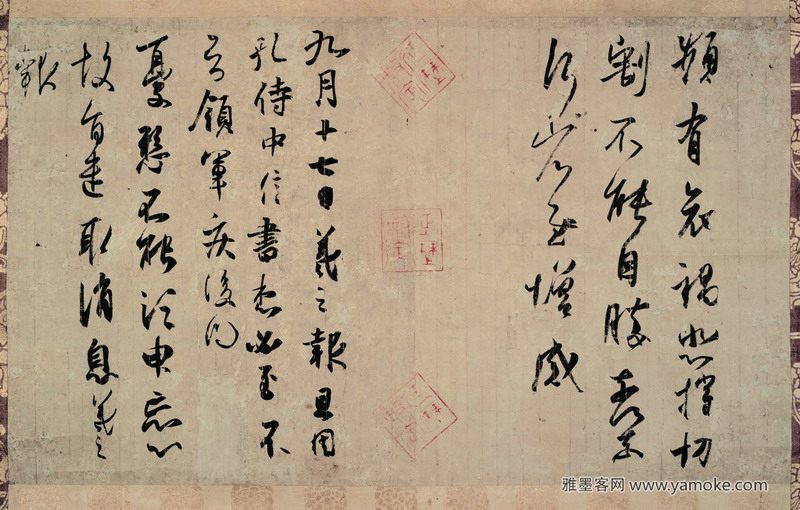 頻有哀禍悲摧切
割不能自勝奈何奈
何省慰增感
九月十七日羲之報且因
孔侍中信書想必至不
知領軍疾後問
憂懸不能須臾忘心
故旨遣取消息羲之
報
雅墨客网 www.yamoke.com